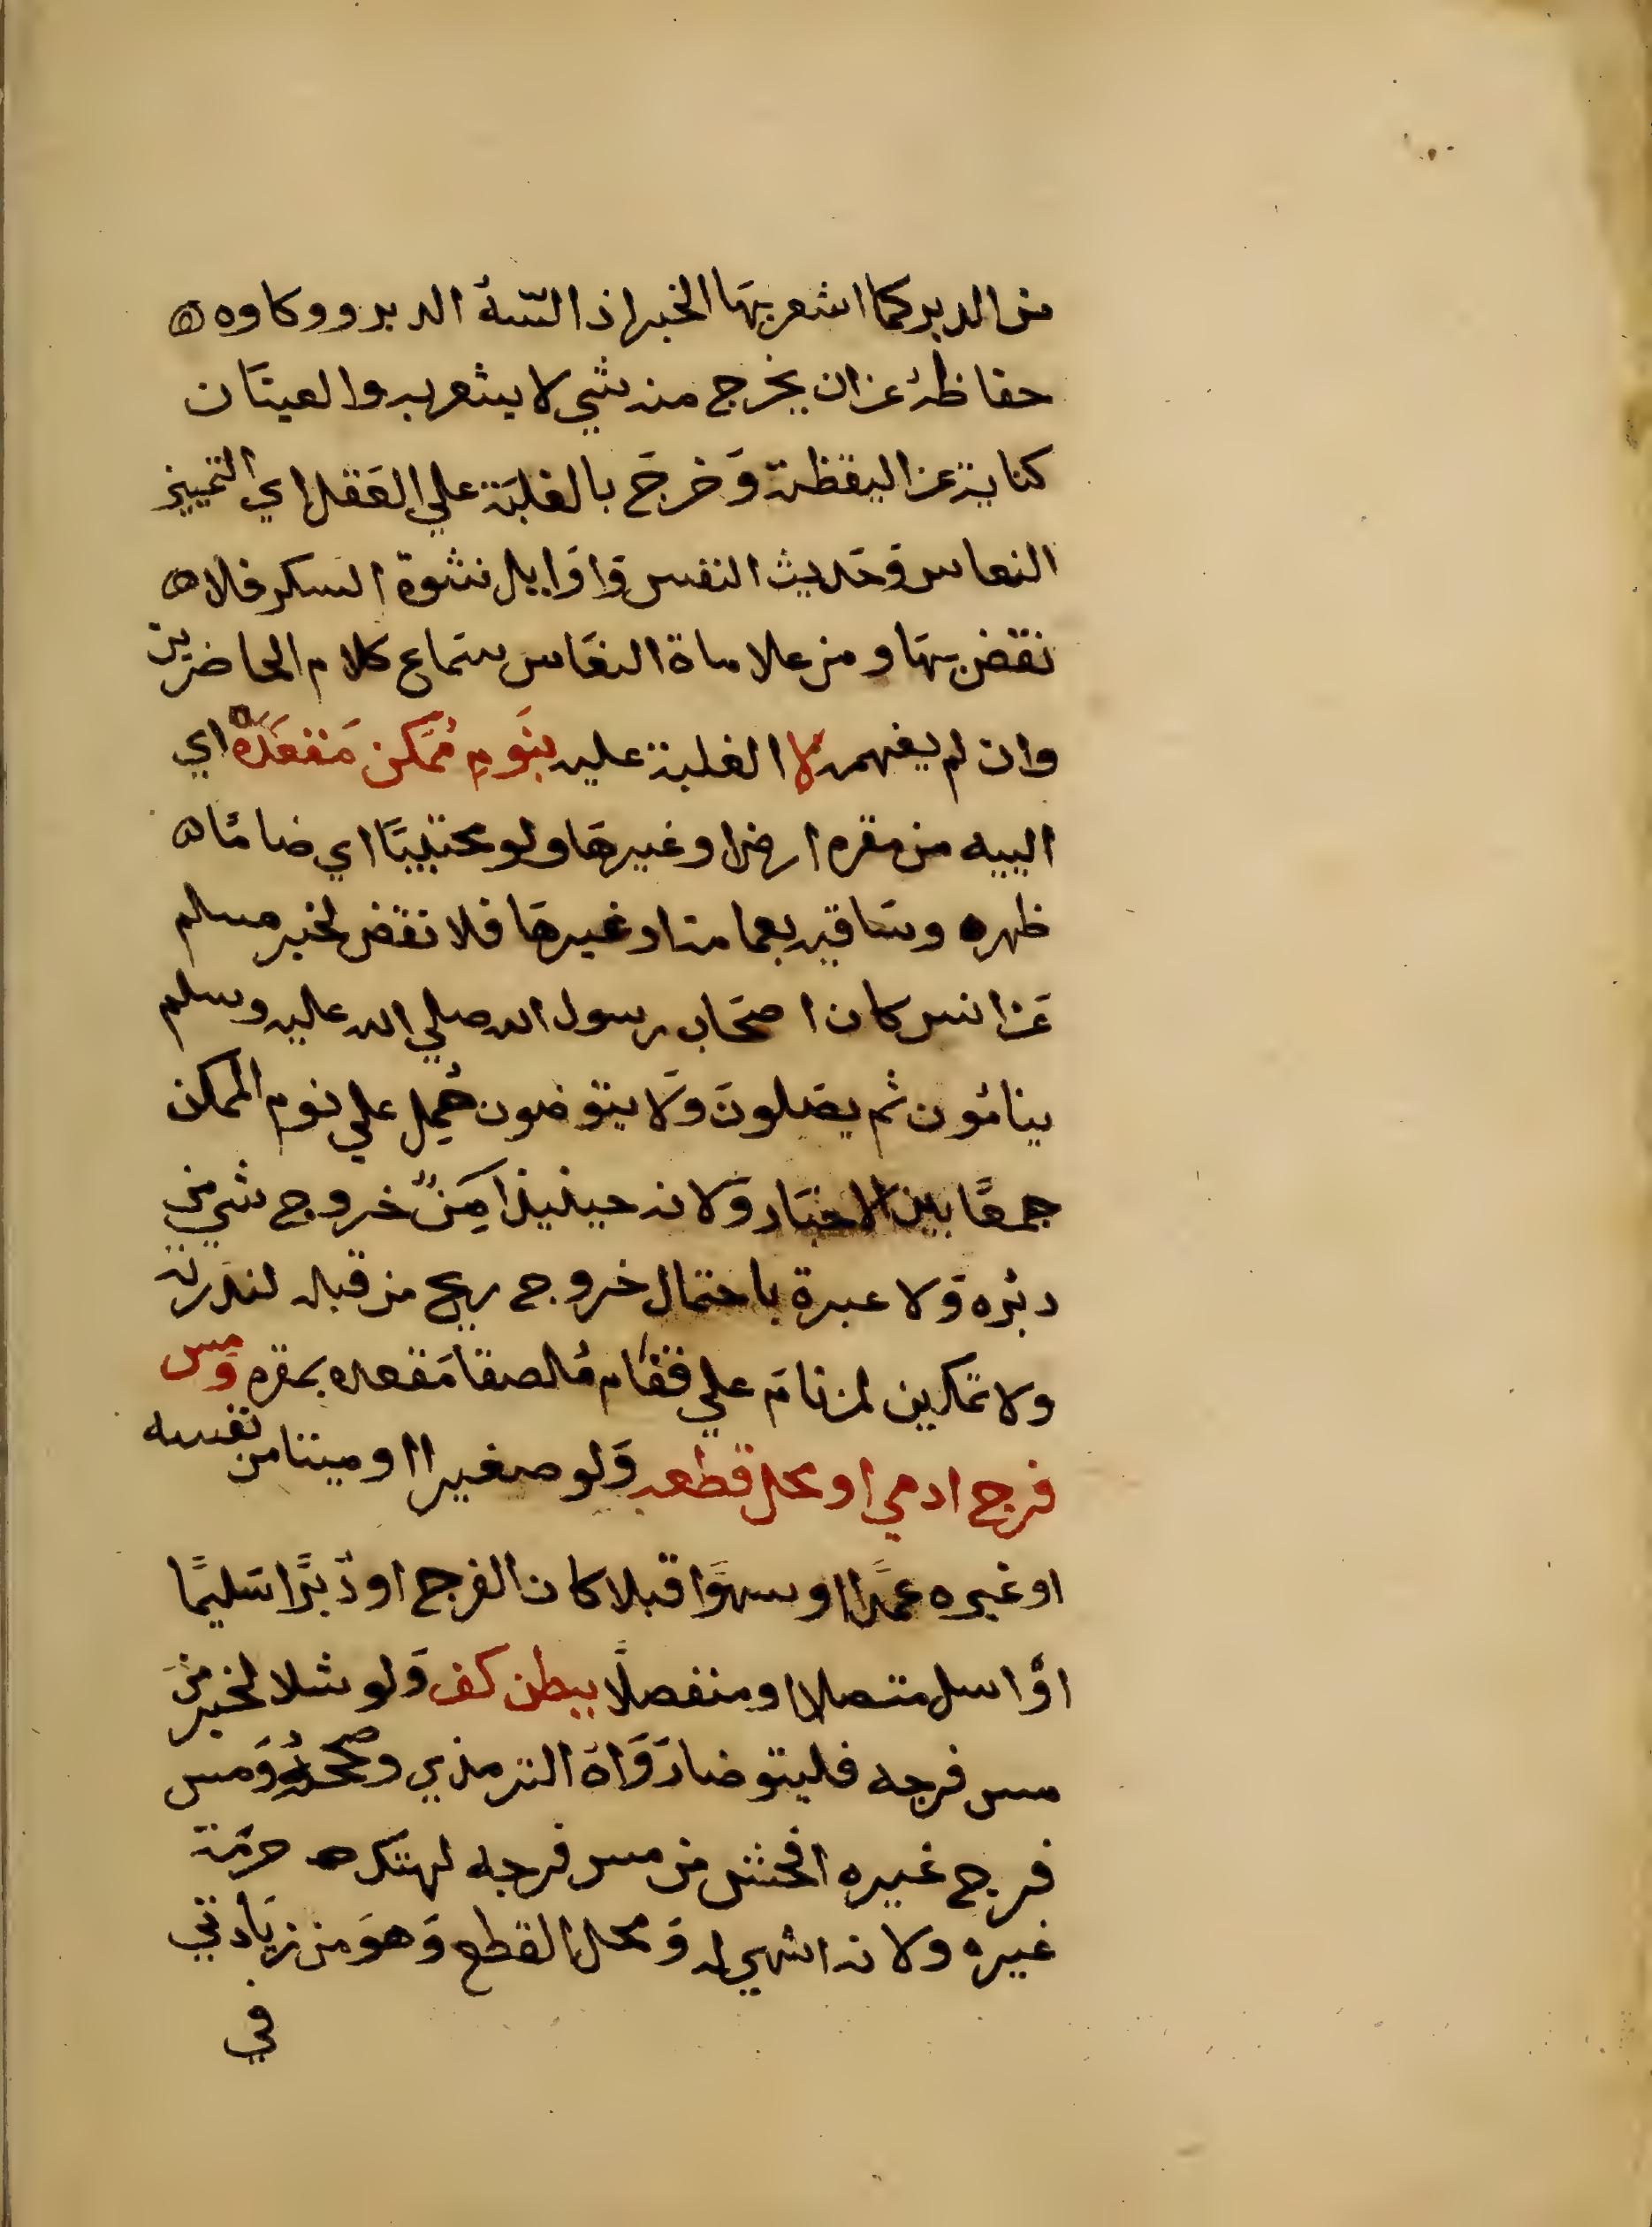 من الدبر كما اشعر بهَا الخبر اذ السّه الدبر ووكاوه
حفاظه عن ان يخرج منه شي لا يشعر به والعينَان
كناية عن اليقظة وَخرجَ بالغلبَة علي العَقل اي التمييز
النعاس وَحَديث النفس وَاوَايل نشوة السكر فلا
نقض بهَا ومن علاماة النعَاس سَماع كلام الحاضرين
وان لم يفهمه لا الغلبة عليه بنَومِ مُمَكن مَقعَدَهُ اي
الييه من مقره ارض او غيرهَا ولو محتبيًا اي ضامًا
ظهره وسَاقيه بعمامة او غيرهَا فلا نقض لخبر مسلم
عَن انس كان اصحَاب رسول الله صلي الله عليه وسلم
ينامُون ثم يصَلونَ وَلا يتوَضون حُمِل علي نوم الممكن
جمعًا بين الاخبَار وَلانه حينيذ امِنَ خروج شي من
دبُره وَلا عبرة باحتمال خروج ريح من قبله لندَرته
ولا تمكين لمن نامَ علي قفَاه مُلصقا مَقعده بمقره وَمس
فرج ادمي او محل قطعه وَلو صغيرا او ميتا من نفسه
او غيره عمدًا او سهوًا قبلا كان الفرج او دُبرًا سَليمًا
اوْ اسل متصلا او منفصلًا ببطن كف وَلو شلا لخبر من
مس فرجه فليتوضا رَوَاهُ الترمذي وصححهُ وَمس
فرج غيره افحش من مس فرجه لهتَكه حرمَة
غيره ولانه اشهي له وَمحل القطع وَهوَ من زيَادتي
في